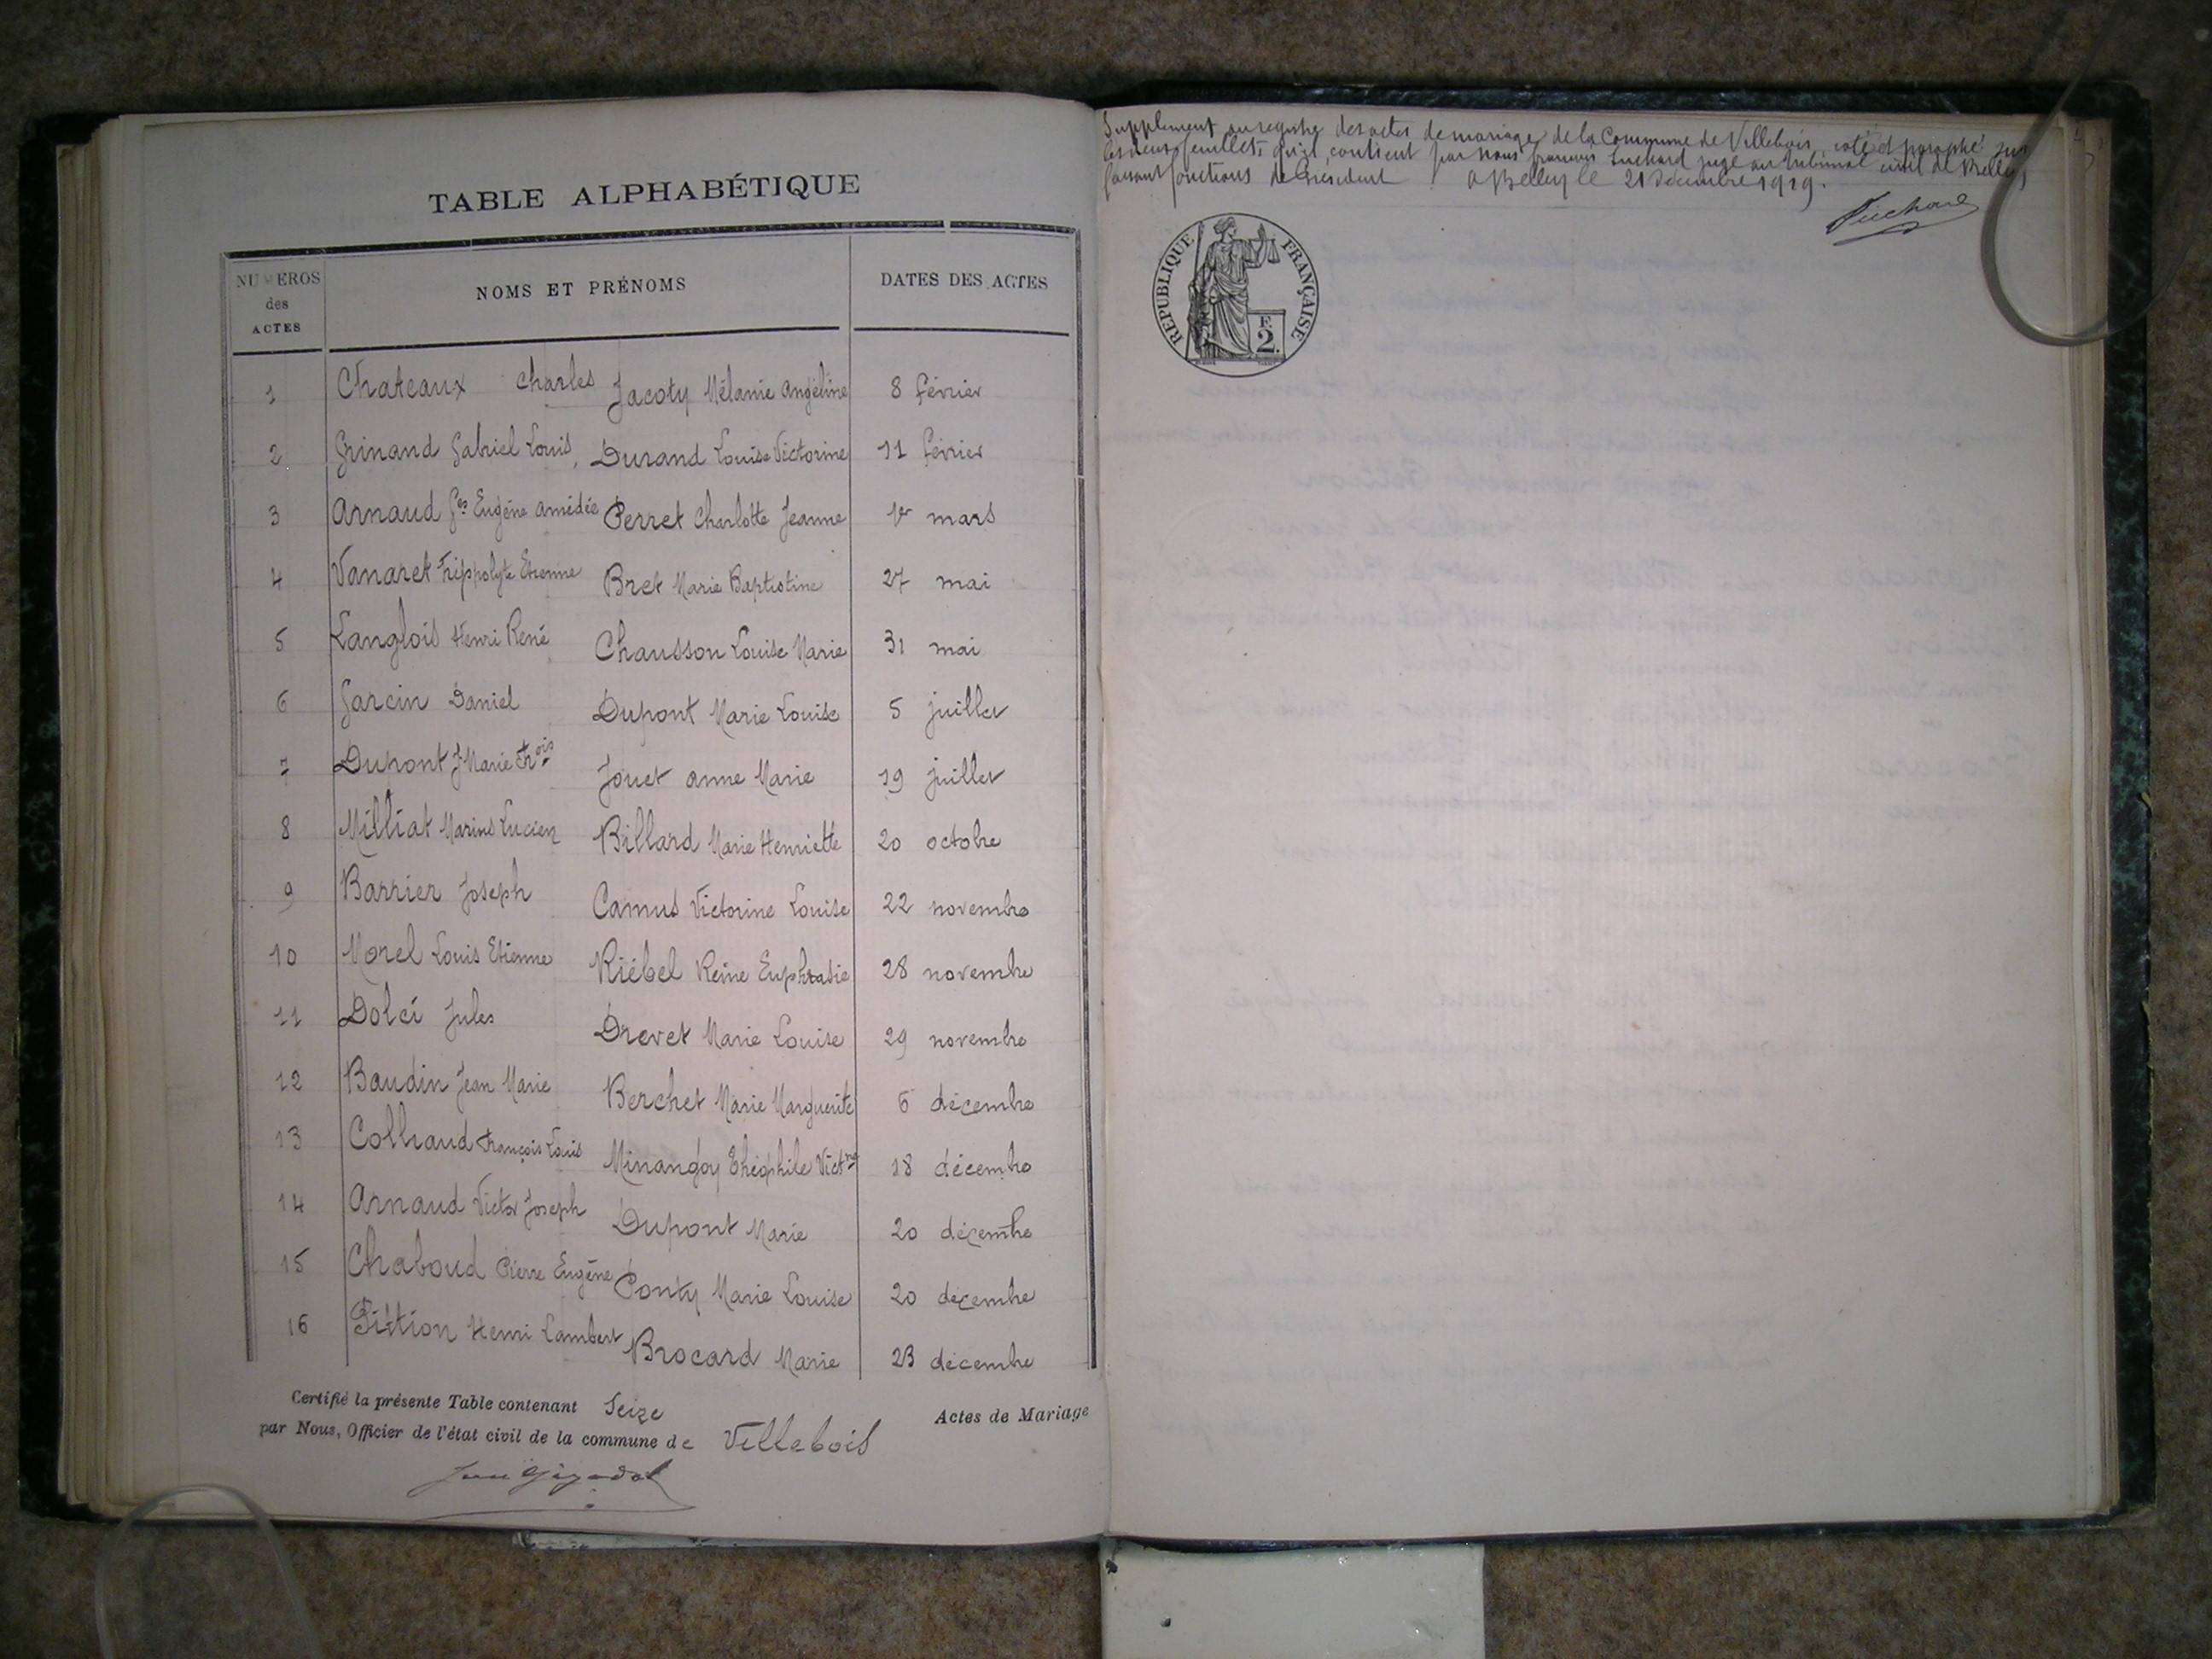 TABLE ALPHABÉTIQUE
NUMEROS des ACTES NOMS ET PRÉNOMS DATES DES ACTES
1 Chateaux Charles Jacoty Mélanie Angéline 8 février
2 Grinand Gabriel Louis, Durand Louise Victorine 11 février
3 Arnaud Ges Eugène Amédée Perret Charlotte Jeanne 1er mars
4 Vanaret Hippolyte Etienne Bret Marie Baptistine 27 mai
5 Langlois Henri René Chausson Louise Marie 31 mai
6 Garcin Daniel Dupont Marie Louise 5 juillet
7 Dupont J Marie Fois Jouet Anne Marie 19 juillet
8 Milliat Marius Lucien Billard Marie Henriette 20 octobre
9 Barrier Joseph Camus Victorine Louise 22 novembre
10 Morel Louis Etienne Riébel Reine Euphrasie 28 novembre
11 Dolci Jules Drevet Marie Louise 29 novembre
12 Baudin Jean Marie Berchet Marie Marguerite 6 décembre
13 Colliaud François Louis Minangoy Théophile Victne 18 décembre
14 Arnaud Victor Joseph Dupont Marie 20 décembre
15 Chaboud Pierre Eugène Ponty Marie Louise 20 décembre
16 Pittion Henri Lambert Brocard Marie 23 décembre
Certifié la présente Table contenant Seize Actes de Mariage
par Nous, Officier de l'état civil de la commune de Villebois
Supplement au registre des actes de mariage de la Commune de Villebois, coté et paraphé sur
les deux feuillets qu'il contient par nous françois Puchard juge au tribunal civil de Belley
faisant fonctions de Président A Belley le 21 Décembre 1919.
Puchard
RÉPUBLIQUE FRANÇAISE
F.
2.